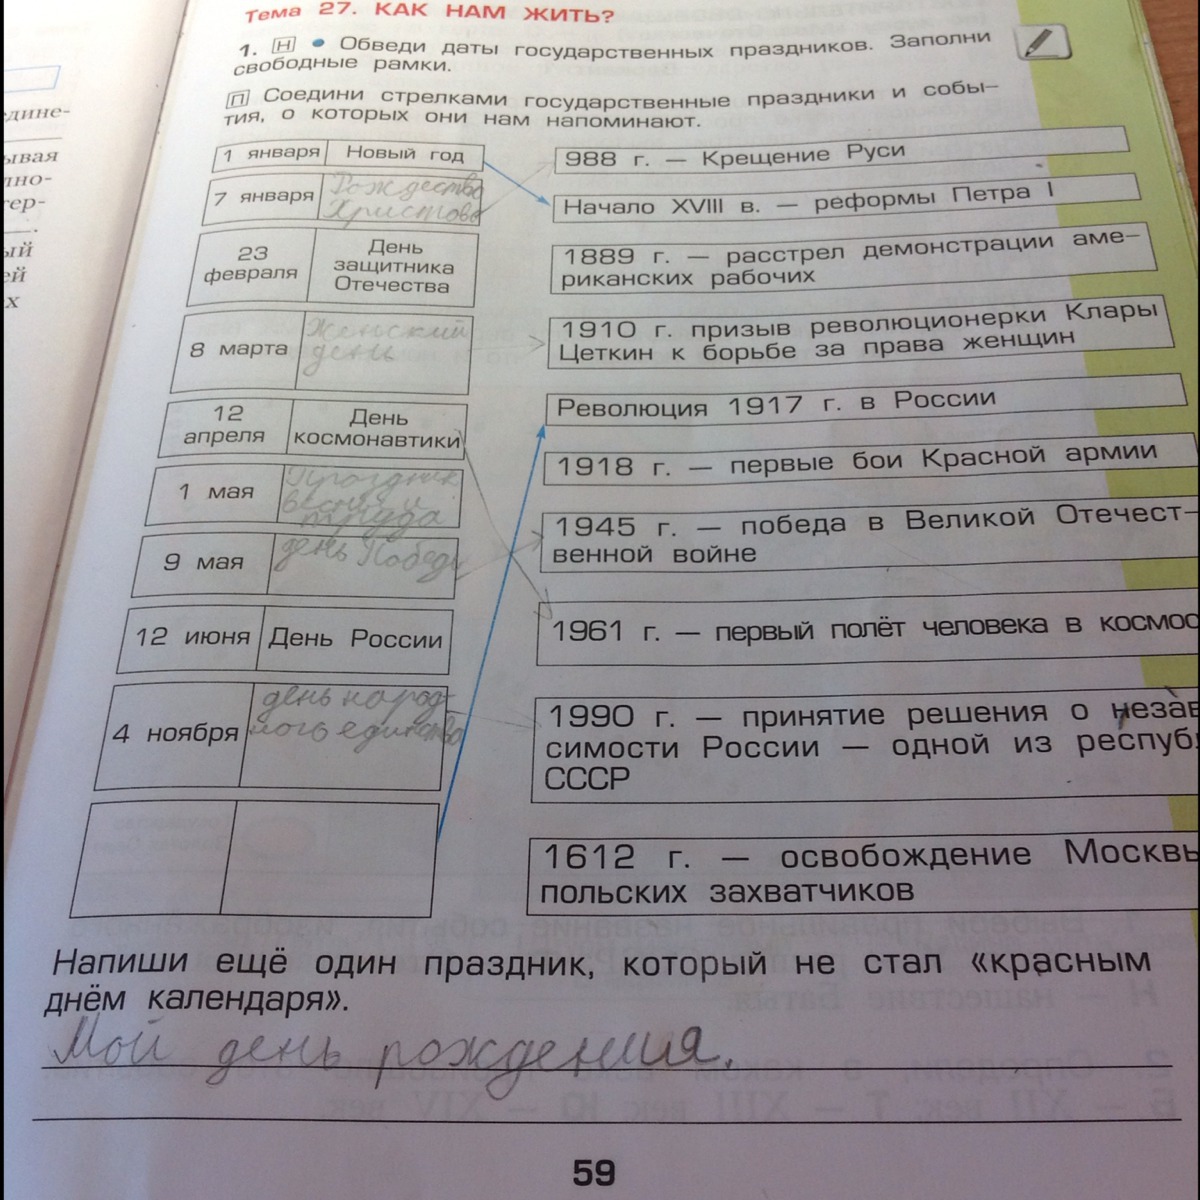 Тема 27. КАК НАМ ЖИТЬ?
1. Н • Обведи даты государственных праздников. Заполни
свободные рамки.
П Соедини стрелками государственные праздники и собы-
тия, о которых они нам напоминают.
1 января Новый год
7 января Рождество
Христово
23
февраля
День
защитника
Отечества
8 марта Женский
день
12
апреля
День
космонавтики
1 мая Праздник
весны и
труда
9 мая день Победы
12 июня День России
4 ноября день народ-
ного единство
988 г. — Крещение Руси
Начало XVIII в. — реформы Петра I
1889 г. — расстрел демонстрации аме-
риканских рабочих
1910 г. призыв революционерки Клары
Цеткин к борьбе за права женщин
Революция 1917 г. в России
1918 г. — первые бои Красной армии
1945 г. — победа в Великой Отечест-
венной войне
1961 г. — первый полёт человека в космос
1990 г. — принятие решения о незав
симости России — одной из респуб
СССР
1612 г. — освобождение Москвы
польских захватчиков
Напиши ещё один праздник, который не стал «красным
днём календаря».
Мой день рождения.
59
едине-
ывая
лно-
тер-
ый
ей
ах